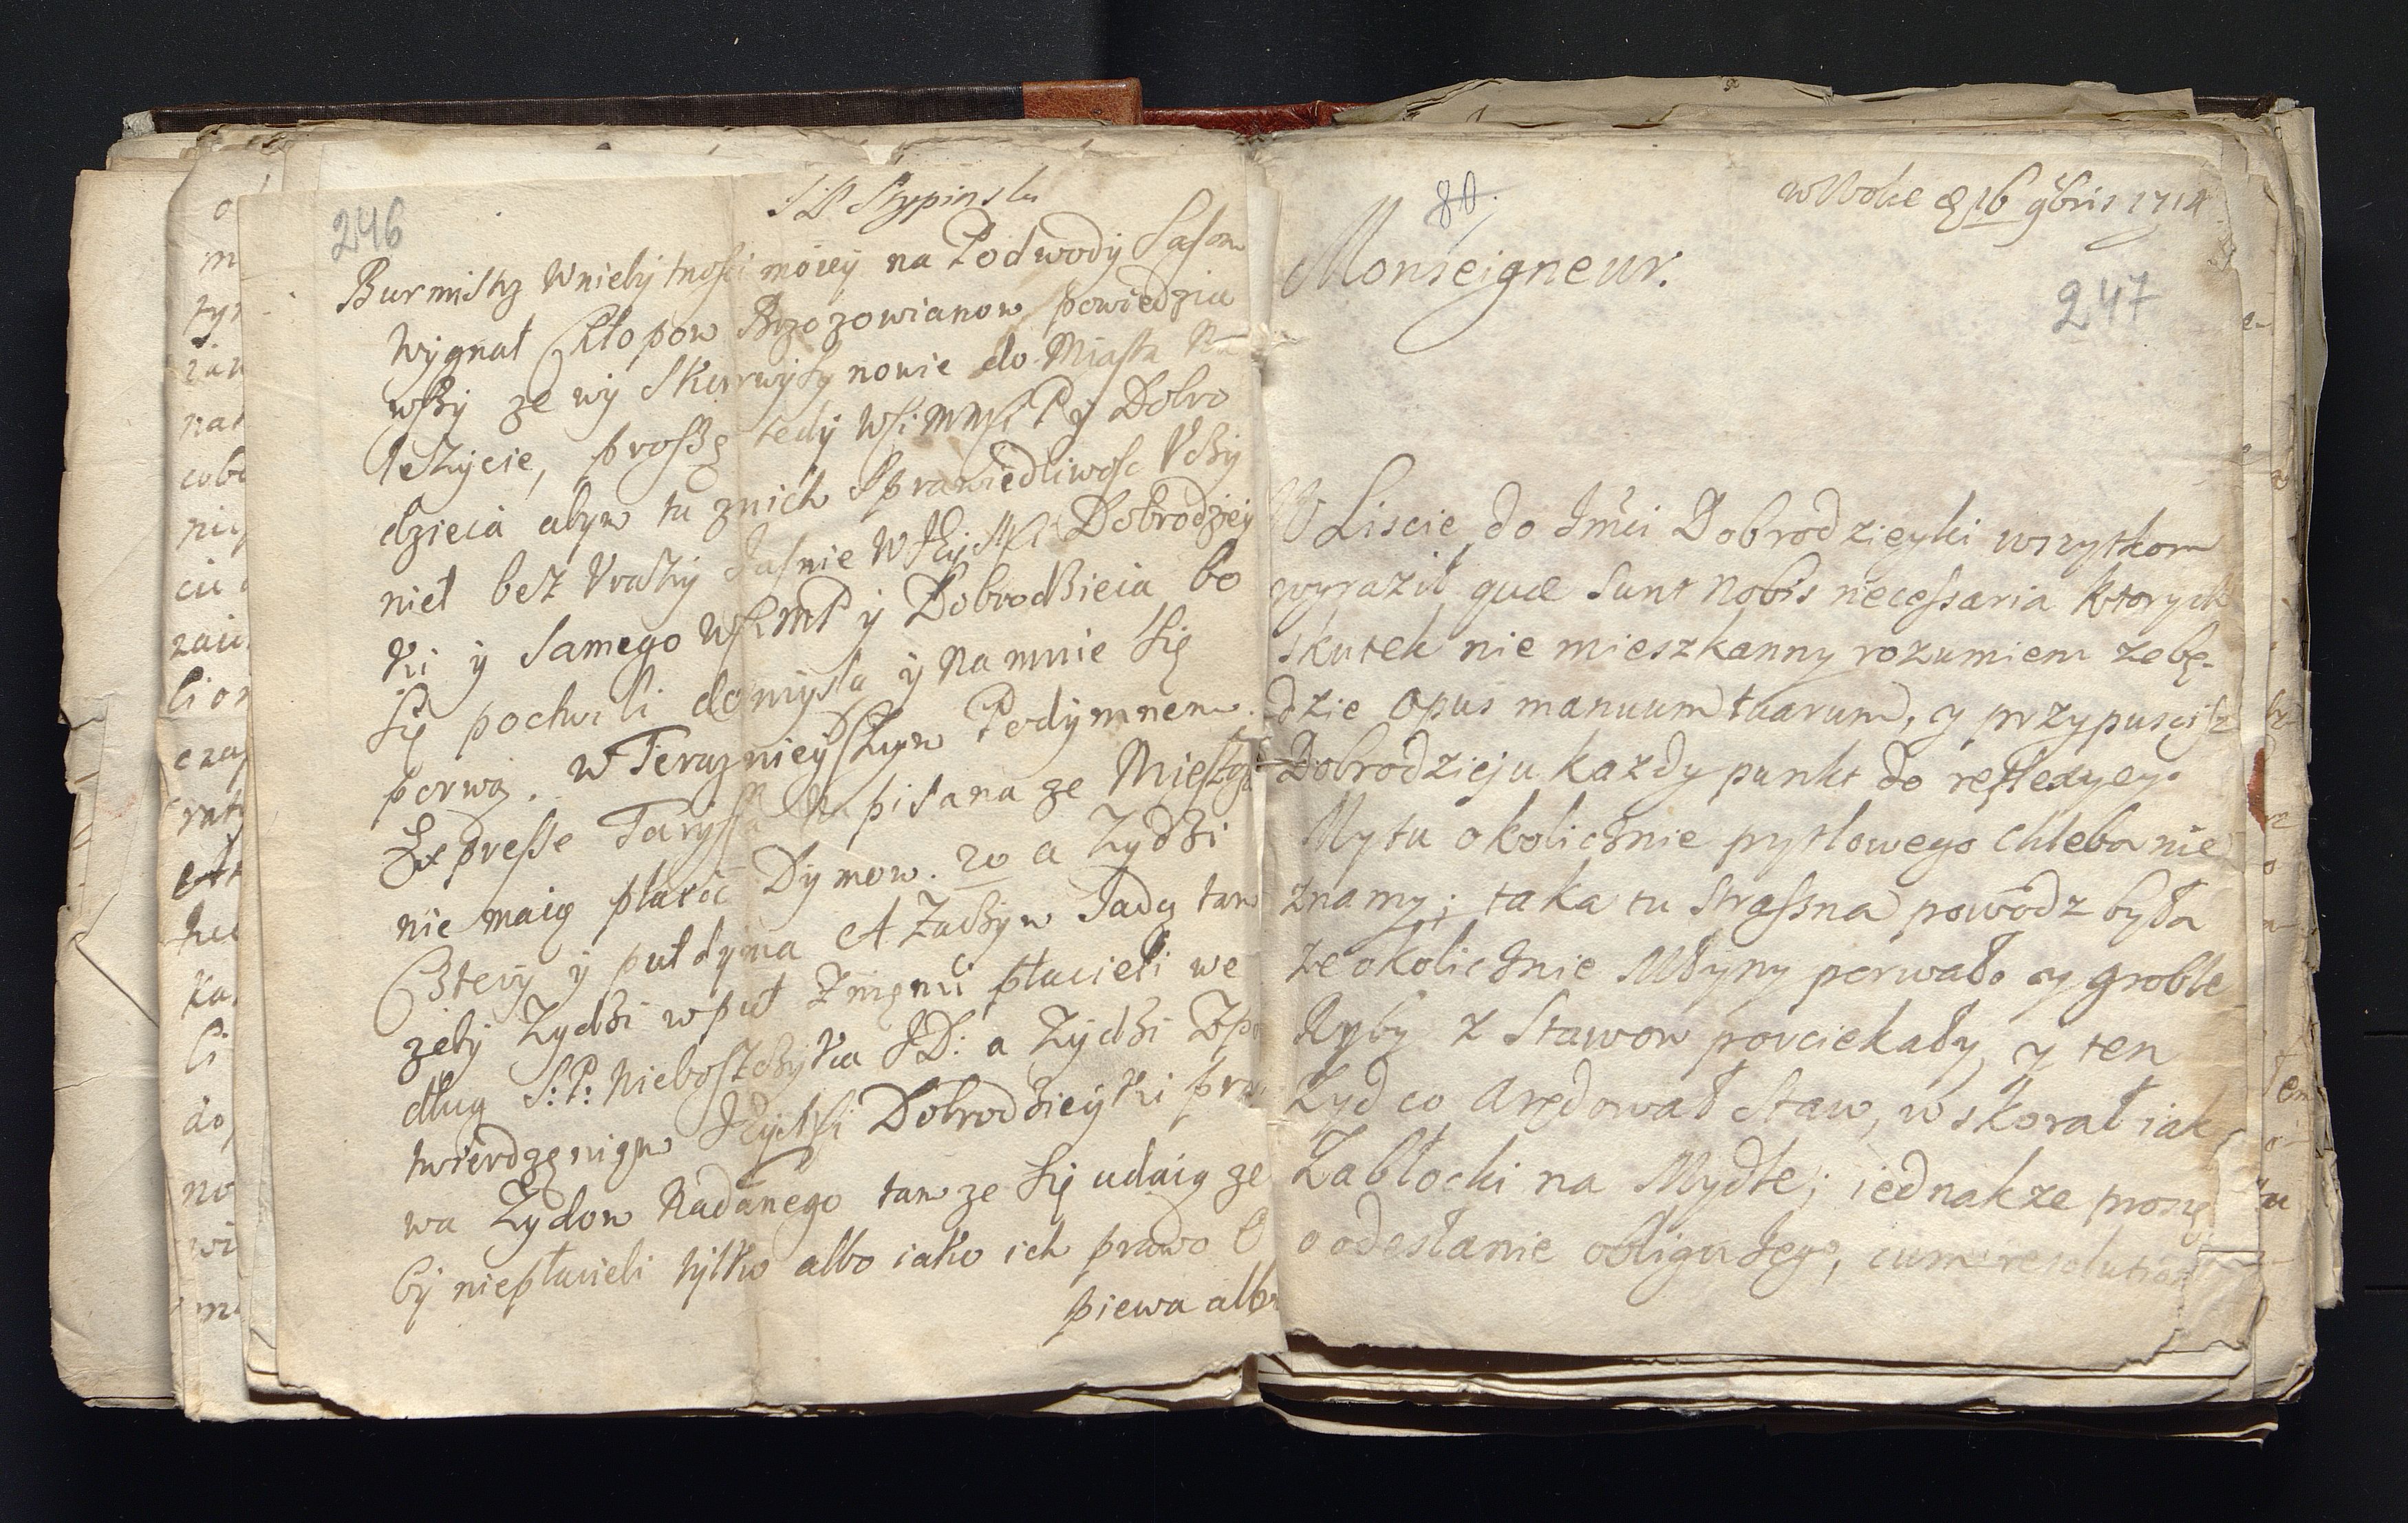 246
Burmistz w niebytnosci moiey na Podwody
wygnał Chłopow Brzozowianow powiedzia
wszy ze wy skurwysynowie do Miasta
lezycie, proszę tedy WSi: P y Dobro
dzieia abym tu znich sprawiedliwosc Vczy
nieł bez Vrazy Jasnie Dobrodziey
ki y samego Dobrodzieia bo
się pochwili domysla y na mnie się
porwą. w Teraznieyszym Podymnem
Expresse Taryffa Napisana ze
nie maią płacic Dymow. 20 a Zydzi
Cztery y puł dyma A Zaczym Jadą tam
zeby Zydzi wpuł znięmi płacieli we
dług S: P: Nieboszczyka JD: a Zydzi
twierdzęnięm Dobrodzieyki pra
wa Zydom Nadanego tam ze się udaią ze
by niepłacieli tylko albo iako ich prawo O
piewa albo
80.
w Woli d 16 9bris 1714
247
Monseigneur.
W Liscie do Jmći Dobrodzieyki wszytkom
wyraził quæ sunt nobis necessaria ktorych
skutek nie mieszkanny rozumiem zebę-
dzie opus manuum tuarum, y przypuscisz
Dobrodzieju kazdy punkt do reflexyey.
My tu okolicznie pytlowego chleba nie
znamy; taka tu straszna powodz była
ze okolicznie Młyny porwało y groble
Ryby z Stawow pouciekały, y ten
Zyd co Arędował Staw, wskorał iak
Zabłocki na Mydle; iednakze proszę
o odesłanie obligu Jego, cum resolutione